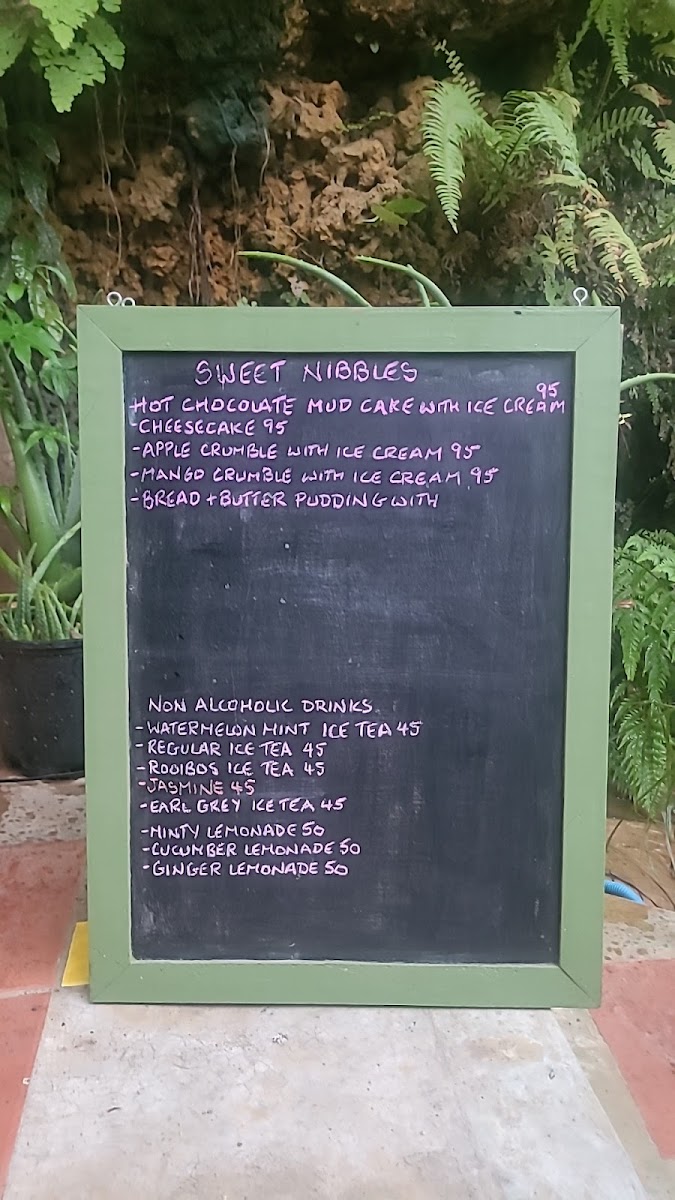 SWEET NIBBLES
HOT CHOCOLATE MUD CAKE WITH ICE CREAM 95
-CHEESECAKE 95
-APPLE CRUMBLE WITH ICE CREAM 95
-MANGO CRUMBLE WITH ICE CREAM 95
-BREAD + BUTTER PUDDING WITH
NON ALCOHOLIC DRINKS
-WATERMELON MINT ICE TEA 45
-REGULAR ICE TEA 45
-ROOIBOS ICE TEA 45
-JASMINE 45
-EARL GREY ICE TEA 45
-MINTY LEMONADE 50
-CUCUMBER LEMONADE 50
-GINGER LEMONADE 50